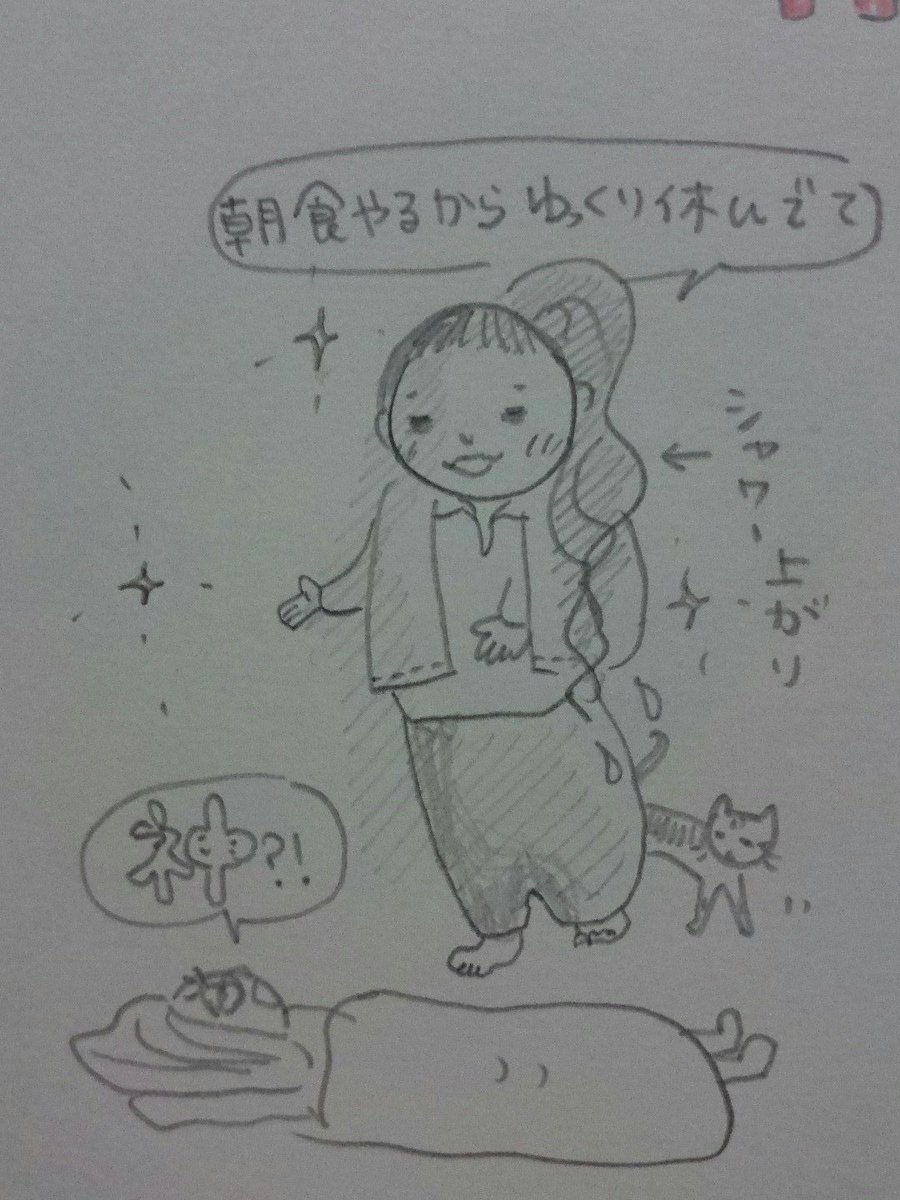 朝食やるからゆっくり休んでて
シャワー上がり
神?!